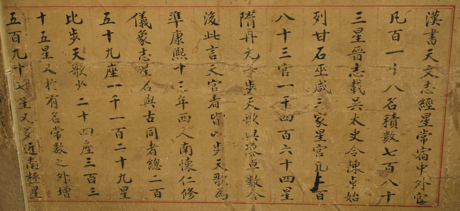 漢書天文志經星常宿中外官
凡百一十八名積數七百八十
三星晉志載吳太史令陳卓始
列甘石巫咸三家星官凡百
八十三官一千四百六十四星
隋丹元子步天歌與陳卓數合
後此言天官者皆以步天歌為
準康熙十三年西人南懷仁修
儀象志星名與古同者總二百
五十九座一千一百二十九星
比步天歌少二十四座三百三
十五星又於有名常數之外增
五百九十七星又多近南極星